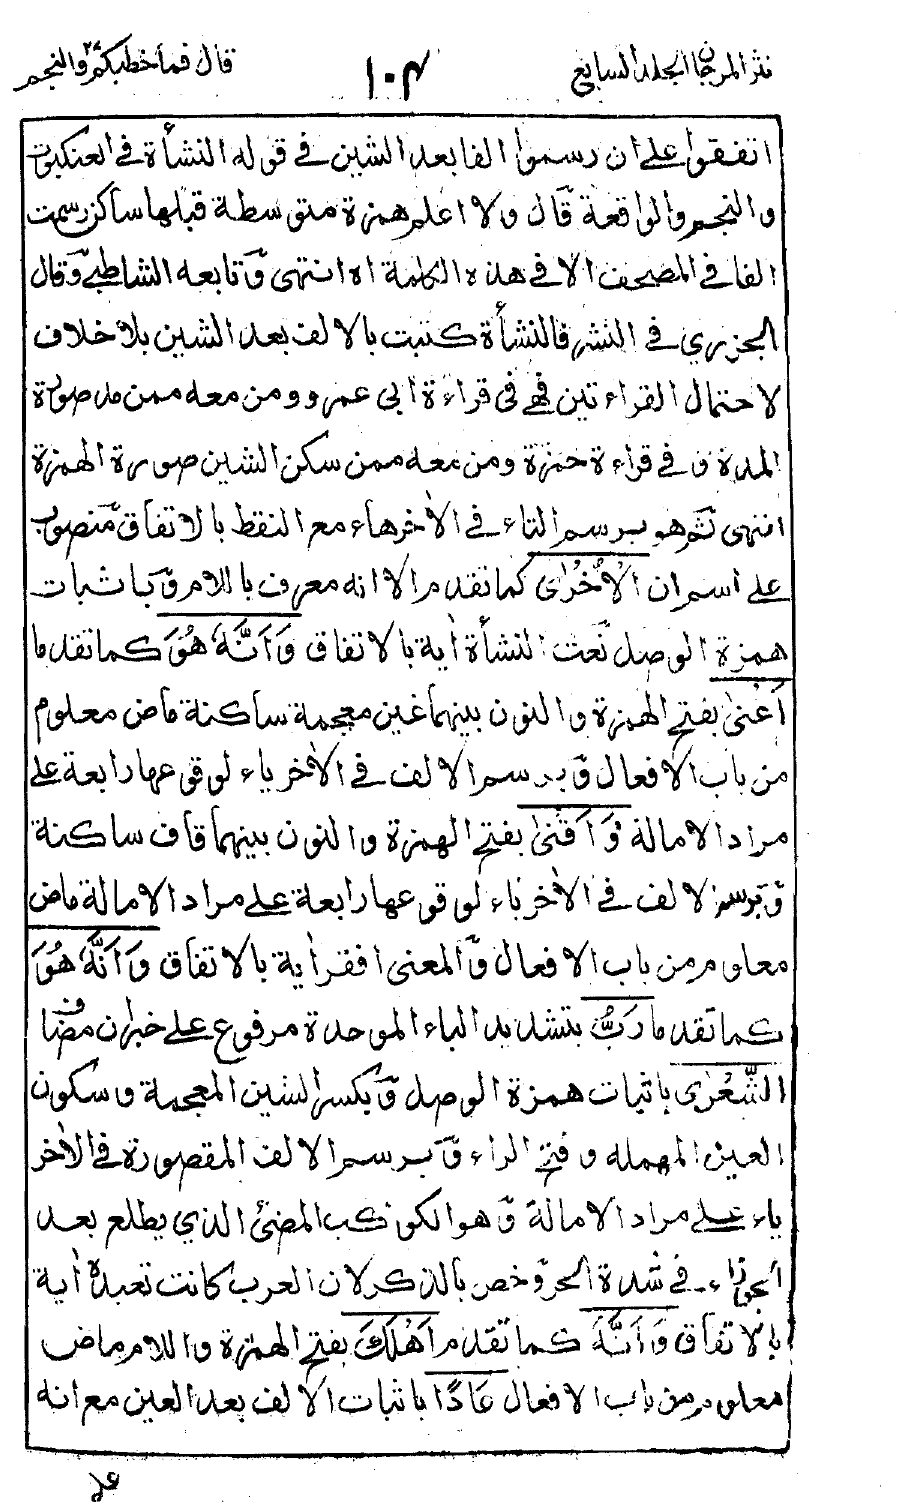 نثر المرجان الجلد السابع
١٠٣
قال فما خطبكم ٢٧ والنجم
اتفقوا على ان رسموا الفا بعد الشين في قوله النشأة في العنكبوت
والنجم والواقعة قال ولا اعلم همزة متوسطة قبلها ساكن رسمت
الفا في المصحف الا في هذه الكلمة اه انتهى وتابعه الشاطبي وقال
الجزري في النشر فالنشأة كتبت بالالف بعد الشين بلا خلاف
لاحتمال القراءتين فهي في قراءة ابى عمرو ومن معه ممن مد صورة
المدة و في قراءة حمزة ومن معه ممن سكن الشين صورة الهمزة
انتهى ثم هو برسم التاء في الأخر هاء مع النقط بالاتفاق منصوب
على اسم ان الْأُخْرٰى كما تقدم الا انه معرف باللام وباثبات
همزة الوصل نعت النشأة أية بالاتفاق وَاَنَّهٗ هُوَ كما تقدما
اَغْنٰى بفتح الهمزة والنون بينهما غين معجمة ساكنة ماض معلوم
من باب الافعال وبرسم الالف في الأخر ياء لوقوعها رابعة على
مراد الامالة وَاَقْنٰى بفتح الهمزة والنون بينهما قاف ساكنة
وبرسم الالف في الأخر ياء لوقوعها رابعة على مراد الامالة ماض
معلوم من باب الافعال والمعنى افقر أية بالاتفاق وَاَنَّهٗ هُوَ
كما تقدما رَبُّ بتشديد الباء الموحدة مرفوع على خبر ان مضاف
الشِّعْرٰى باثبات همزة الوصل وبكسر الشين المعجمة وسكون
العين المهملة وفتح الراء وبرسم الالف المقصورة في الأخر
ياء على مراد الامالة وهو الكوكب المضئ الذي يطلع بعد
الجوزاء في شدة الحر وخص بالذكر لان العرب كانت تعبده أية
بالاتفاق وَاَنَّهٗ كما تقدم اَهْلَكَ بفتح الهمزة واللام ماض
معلوم من باب الافعال عَادًا باثبات الالف بعد العين مع انه